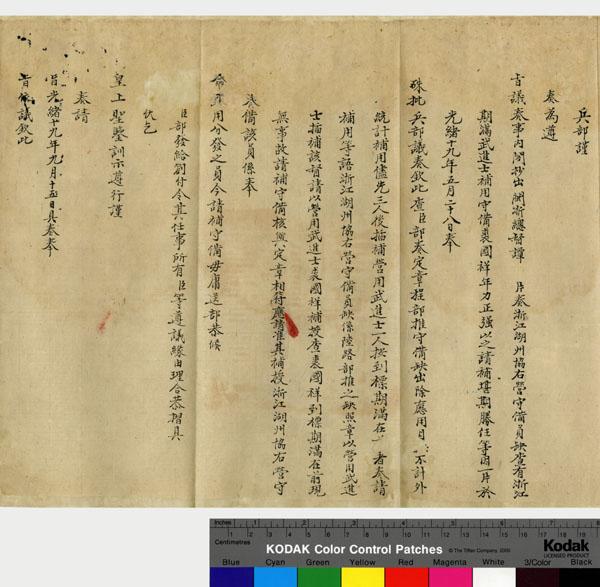 兵部謹
奏為遵
旨議奏事內閣抄出閩浙總督譚 片奏浙江湖州協右營守備員缺查有浙江
期滿武進士補用守備裘國祥年力正強以之請補堪期勝任等因一片於
光緒十九年五月二十八日奉
硃批兵部議奏欽此查臣部奏定章程部推守備缺出除應用日 不計外
統計補用儘先三人後插補營用武進士一人按到標期滿在 者奏請
補用等語浙江湖州協右營守備員缺係陸路部推之缺照章以營用武進
士插補該督請以營用武進士裘國祥補授查裘國祥到標期滿在前現
無事故請補守備核與定章相符應請准其補授浙江湖州協右營守
備該員係奉
用分發之員今請補守備毋庸送部恭候
臣部發給劄付令其任事所有臣等遵議緣由理合恭摺具
伏乞
皇上聖鑒訓示遵行謹
奏請
旨光緒十九年九月十五日具奏奉
旨依議欽此
Inches
Centimetres
KODAK Color Control Patches
© The Tiffen Company, 2000
Kodak
LICENSED PRODUCT
Blue Cyan Green Yellow Red Magenta White 3/Color Black